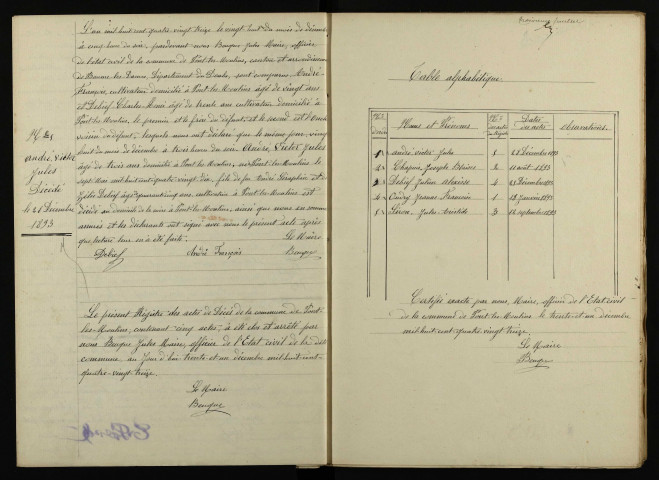 L'an mil huit cent quatre vingt treize le vingt huit du mois de décembre
à cinq heures du soir, pardevant nous Bougue Jules Maire, officier
de l'état civil de la commune de Pont les Moulins, canton et arrondissement
de Baume les Dames, Département du Doubs, sont comparus André
François, cultivateur domicilié à Pont les Moulins âgé de vingt ans
et Delief Charles Henri âgé de trente ans cultivateur domicilié à
Pont les Moulins, le premier est le frère du défunt et le second est
voisin du défunt, lesquels nous ont déclaré que le même jour, vingt
huit du mois de décembre à trois heures du soir André Victor Jules
âgé de trois ans domicilié à Pont les Moulins, né à Pont les Moulins le
sept Mai mil huit cent quatre vingt dix, fils de André Séraphin et de
Delief âgée quarante cinq ans, cultivateurs à Pont les Moulins est
décédé au domicile de à Pont les Moulins, ainsi que nous en sommes
assurés et les déclarants ont signé avec nous le présent acte après
que lecture leur en a été faite.
Le Maire
Delief André François Bougue
N° 5
André Victor
Jules
Décédé
le 28 Décembre
1893
Le présent Registre des actes de Décès de la commune de Pont-
les-Moulins, contenant cinq actes, a été clos et arrêté par
nous Bougue Jules Maire, officier de l'Etat civil de la dite
commune, au jour d'hui trente et un décembre mil huit cent
quatre-vingt treize.
Le Maire
Bougue
Table alphabétique
Noms et Prénoms
Dates
des actes
observations
1 André Victor Jules 5 28 Décembre 1893
2 Chapuis Joseph 2 11 août 1893
3 Delief Julien 4 25 Décembre 1893
4 1 18 janvier 1893
5 Jules 3 12 septembre 1893
Certifié exacte, par nous, Maire, officier de l'Etat civil
de la commune de Pont les Moulins le trente et un décembre
mil huit cent quatre vingt treize.
Le Maire
Bougue